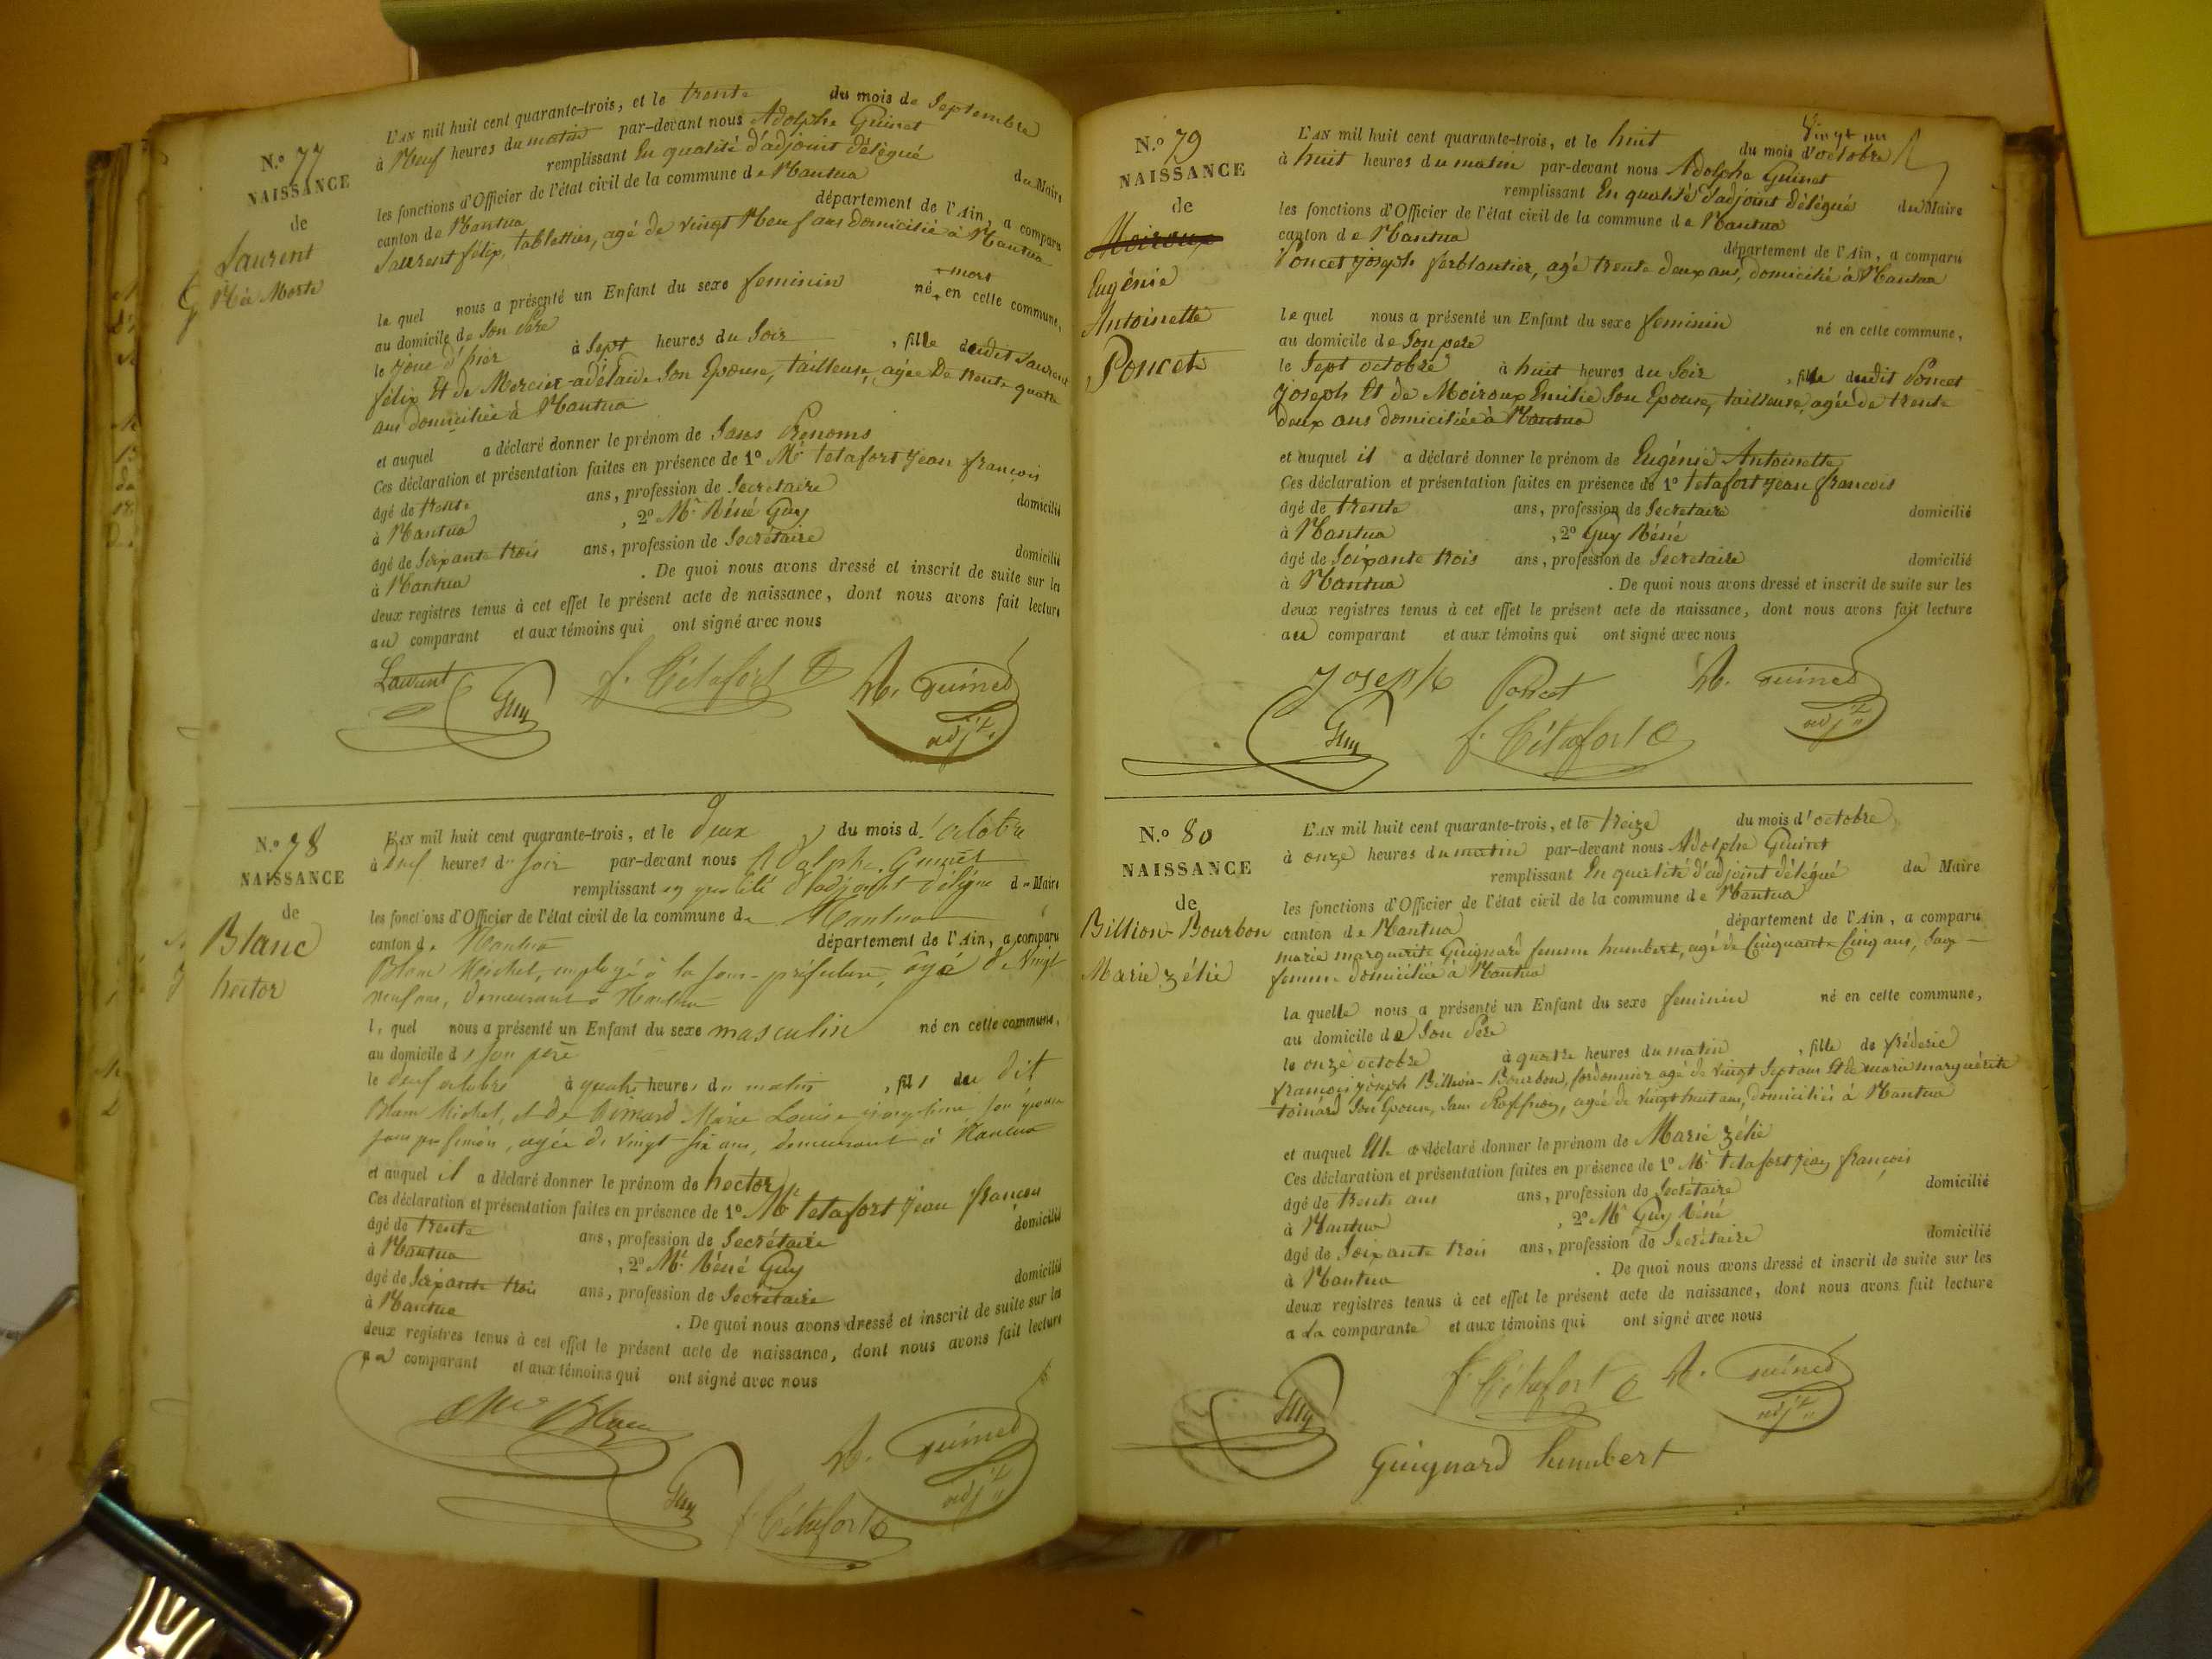 N.º 77
NAISSANCE
de
Laurent
Née Morte
L'AN mil huit cent quarante-trois, et le trente du mois de Septembre
à Neuf heures du matin par-devant nous Adolphe Guinet
remplissant En qualité d'adjoint délégué du Maire
les fonctions d'Officier de l'état civil de la commune de Nantua
canton de Nantua département de l'Ain, a comparu
Laurent félix, tablettier, agé de vingt Neuf ans domicilié à Nantua
le quel nous a présenté un Enfant du sexe feminin né mort en cette commune,
au domicile de Son Père
le jour d'hier à Sept heures du Soir, fille dudit Laurent
félix Et de Mercier adélaide Son Epouse, tailleuse, agée De trente quatre
ans domiciliée à Nantua
et auquel a déclaré donner le prénom de Sans Prenoms
Ces déclaration et présentation faites en présence de 1º Mr tetafort Jean françois
âgé de trente ans, profession de Secrétaire domicilié
à Nantua, 2º Mr Réné Guy
âgé de Soixante trois ans, profession de Secrétaire domicilié
à Nantua. De quoi nous avons dressé et inscrit de suite sur les
deux registres tenus à cet effet le présent acte de naissance, dont nous avons fait lecture
au comparant et aux témoins qui ont signé avec nous
Laurent Guy f. Tétafort A. Guinet adjt
N.º 78
NAISSANCE
de
Blanc
hector
L'AN mil huit cent quarante-trois, et le deux du mois d'octobre
à heures du soir par-devant nous Adolphe Guinet
remplissant en qualité d'adjoint délégué du Maire
les fonctions d'Officier de l'état civil de la commune de Nantua
canton de Nantua département de l'Ain, a comparu
Blanc Michel, employé à la sous-préfecture, âgé de Vingt
neuf ans, demeurant à Nantua
le quel nous a présenté un Enfant du sexe masculin né en cette commune,
au domicile de son père
le octobre à quatre heures du matin, fils du dit
Blanc Michel, et de Marie Louise son épouse
sans profession, agée de vingt-six ans, demeurant à Nantua
et auquel il a déclaré donner le prénom de hector
Ces déclaration et présentation faites en présence de 1º Mr tetafort Jean françois
âgé de trente ans, profession de Secrétaire domicilié
à Nantua, 2º Mr Réné Guy
âgé de Soixante trois ans, profession de Secrétaire domicilié
à Nantua. De quoi nous avons dressé et inscrit de suite sur les
deux registres tenus à cet effet le présent acte de naissance, dont nous avons fait lecture
au comparant et aux témoins qui ont signé avec nous
Blanc A. Guinet adjt
Guy f. Tétafort
N.º 79
NAISSANCE
de
Moiroux
Eugénie
Antoinette
Poncet
Vingt un
L'AN mil huit cent quarante-trois, et le huit du mois d'octobre
à huit heures du matin par-devant nous Adolphe Guinet
remplissant En qualité d'adjoint délégué du Maire
les fonctions d'Officier de l'état civil de la commune de Nantua
canton de Nantua département de l'Ain, a comparu
Poncet Joseph ferblantier, agé trente deux ans, domicilié à Nantua
le quel nous a présenté un Enfant du sexe feminin né en cette commune,
au domicile de Son pere
le Sept octobre à huit heures du Soir, fille dudit Poncet
Joseph Et de Moiroux Emilie Son Epouse, tailleuse, agée de trente
deux ans domiciliée à Nantua
et auquel il a déclaré donner le prénom de Eugénie Antoinette
Ces déclaration et présentation faites en présence de 1º tetafort Jean françois
âgé de trente ans, profession de Secretaire domicilié
à Nantua, 2º Guy Réné
âgé de Soixante trois ans, profession de Secretaire domicilié
à Nantua. De quoi nous avons dressé et inscrit de suite sur les
deux registres tenus à cet effet le présent acte de naissance, dont nous avons fait lecture
au comparant et aux témoins qui ont signé avec nous
Joseph Poncet A. Guinet adjt
Guy f. Tétafort
N.º 80
NAISSANCE
de
Billion-Bourbon
Marie zélie
L'AN mil huit cent quarante-trois, et le treize du mois d'octobre
à onze heures du matin par-devant nous Adolphe Guinet
remplissant En qualité d'adjoint délégué du Maire
les fonctions d'Officier de l'état civil de la commune de Nantua
canton de Nantua département de l'Ain, a comparu
marie marguerite Guignard femme humbert, agé de Cinquante Cinq ans, Sage-
femme domiciliée à Nantua
la quelle nous a présenté un Enfant du sexe feminin né en cette commune,
au domicile de Son Père
le onze octobre à quatre heures du matin, fille de fréderic
françois Joseph Billion-Bourbon, cordonnier agé de vingt Sept ans Et de marie marguérite
toinard Son Epouse, Sans Proffession, agée de vingt huit ans, domiciliés à Nantua
et auquel Elle a déclaré donner le prénom de Marie zélie
Ces déclaration et présentation faites en présence de 1º Mr tetafort Jean françois
âgé de trente ans ans, profession de Secrétaire domicilié
à Nantua, 2º Mr Guy Réné
âgé de Soixante trois ans, profession de Secrétaire domicilié
à Nantua. De quoi nous avons dressé et inscrit de suite sur les
deux registres tenus à cet effet le présent acte de naissance, dont nous avons fait lecture
a La comparante et aux témoins qui ont signé avec nous
Guy f. Tétafort A. Guinet adjt
Guignard humbert